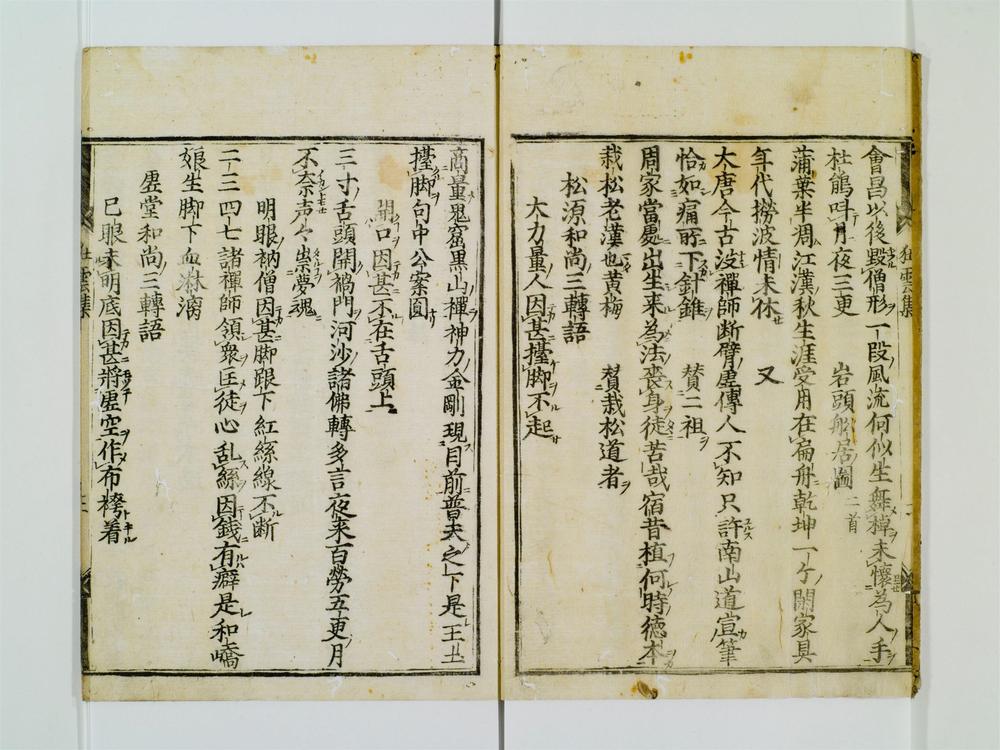 會昌以後毀僧形一段風流何似生舞棹未懷為人手
杜鵑叫月夜三更　岩頭船居圖 二首
蒲葉半凋江漢秋生涯受用在扁舟乾坤一ケ閑家具
年代撈波情未休　又
大唐今古没禪師断臂虚傳人不知只許南山道宣筆
恰如痛所下針錐　賛二祖
周家當處出生来為法喪身徒苦哉宿昔植何時德本
栽松老漢也黄梅　賛栽松道者
松源和尚三轉語
大力量人因甚擡脚不起
商量鬼窟黒山禪神力金剛現目前普天之下是王土
擡脚句中公案圓
開口因甚不在舌頭上
三寸舌頭開禍門河沙諸佛轉多言夜来百勞五更月
不奈声々祟夢魂
明眼衲僧因甚脚跟下紅絲線不断
二三四七諸禪師領衆匡徒心乱絲因錢有癖是和嶠
娘生脚下血淋漓
虚堂和尚三轉語
己眼未明底因甚將虚空作布袴着
狂雲集
狂雲集